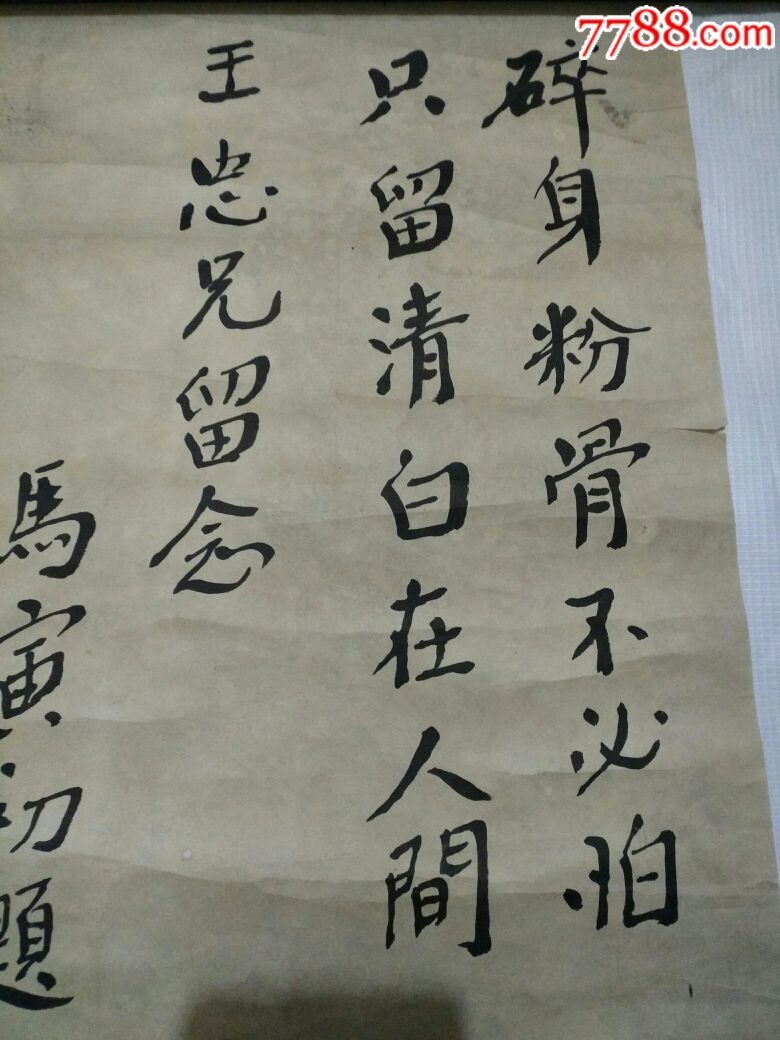 碎身粉骨不必怕
只留清白在人間
王忠兄留念
馬寅初題
7788.com